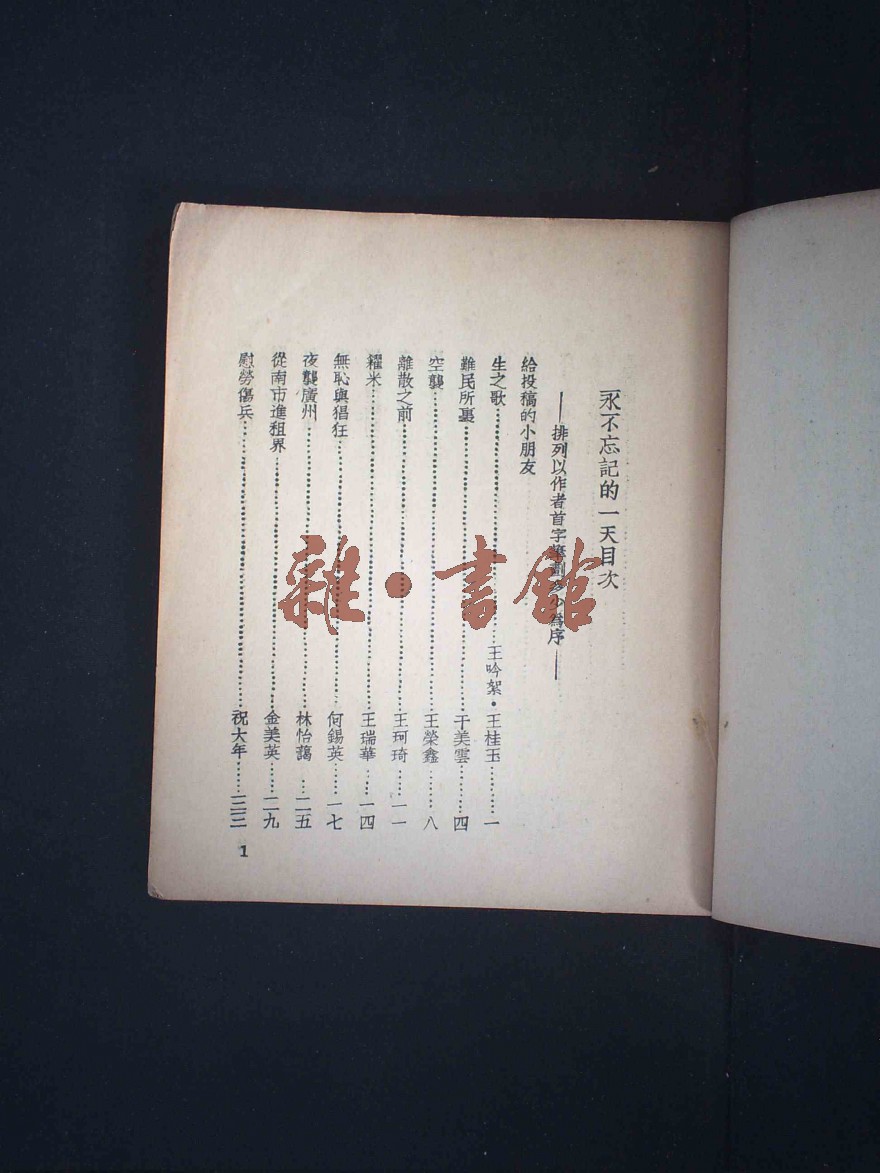 永不忘記的一天目次
——排列以作者首字筆劃多少為序——
給投稿的小朋友
生之歌……王吟絮・王桂玉……一
難民所裏……于美雲……四
空襲……王榮鑫……八
離散之前……王珂琦……一一
糴米……王瑞華……一四
無恥與猖狂……何錫英……一七
夜襲廣州……林怡藹……二五
從南市進租界……金美英……二九
慰勞傷兵……祝大年……三三
1
雜・書館